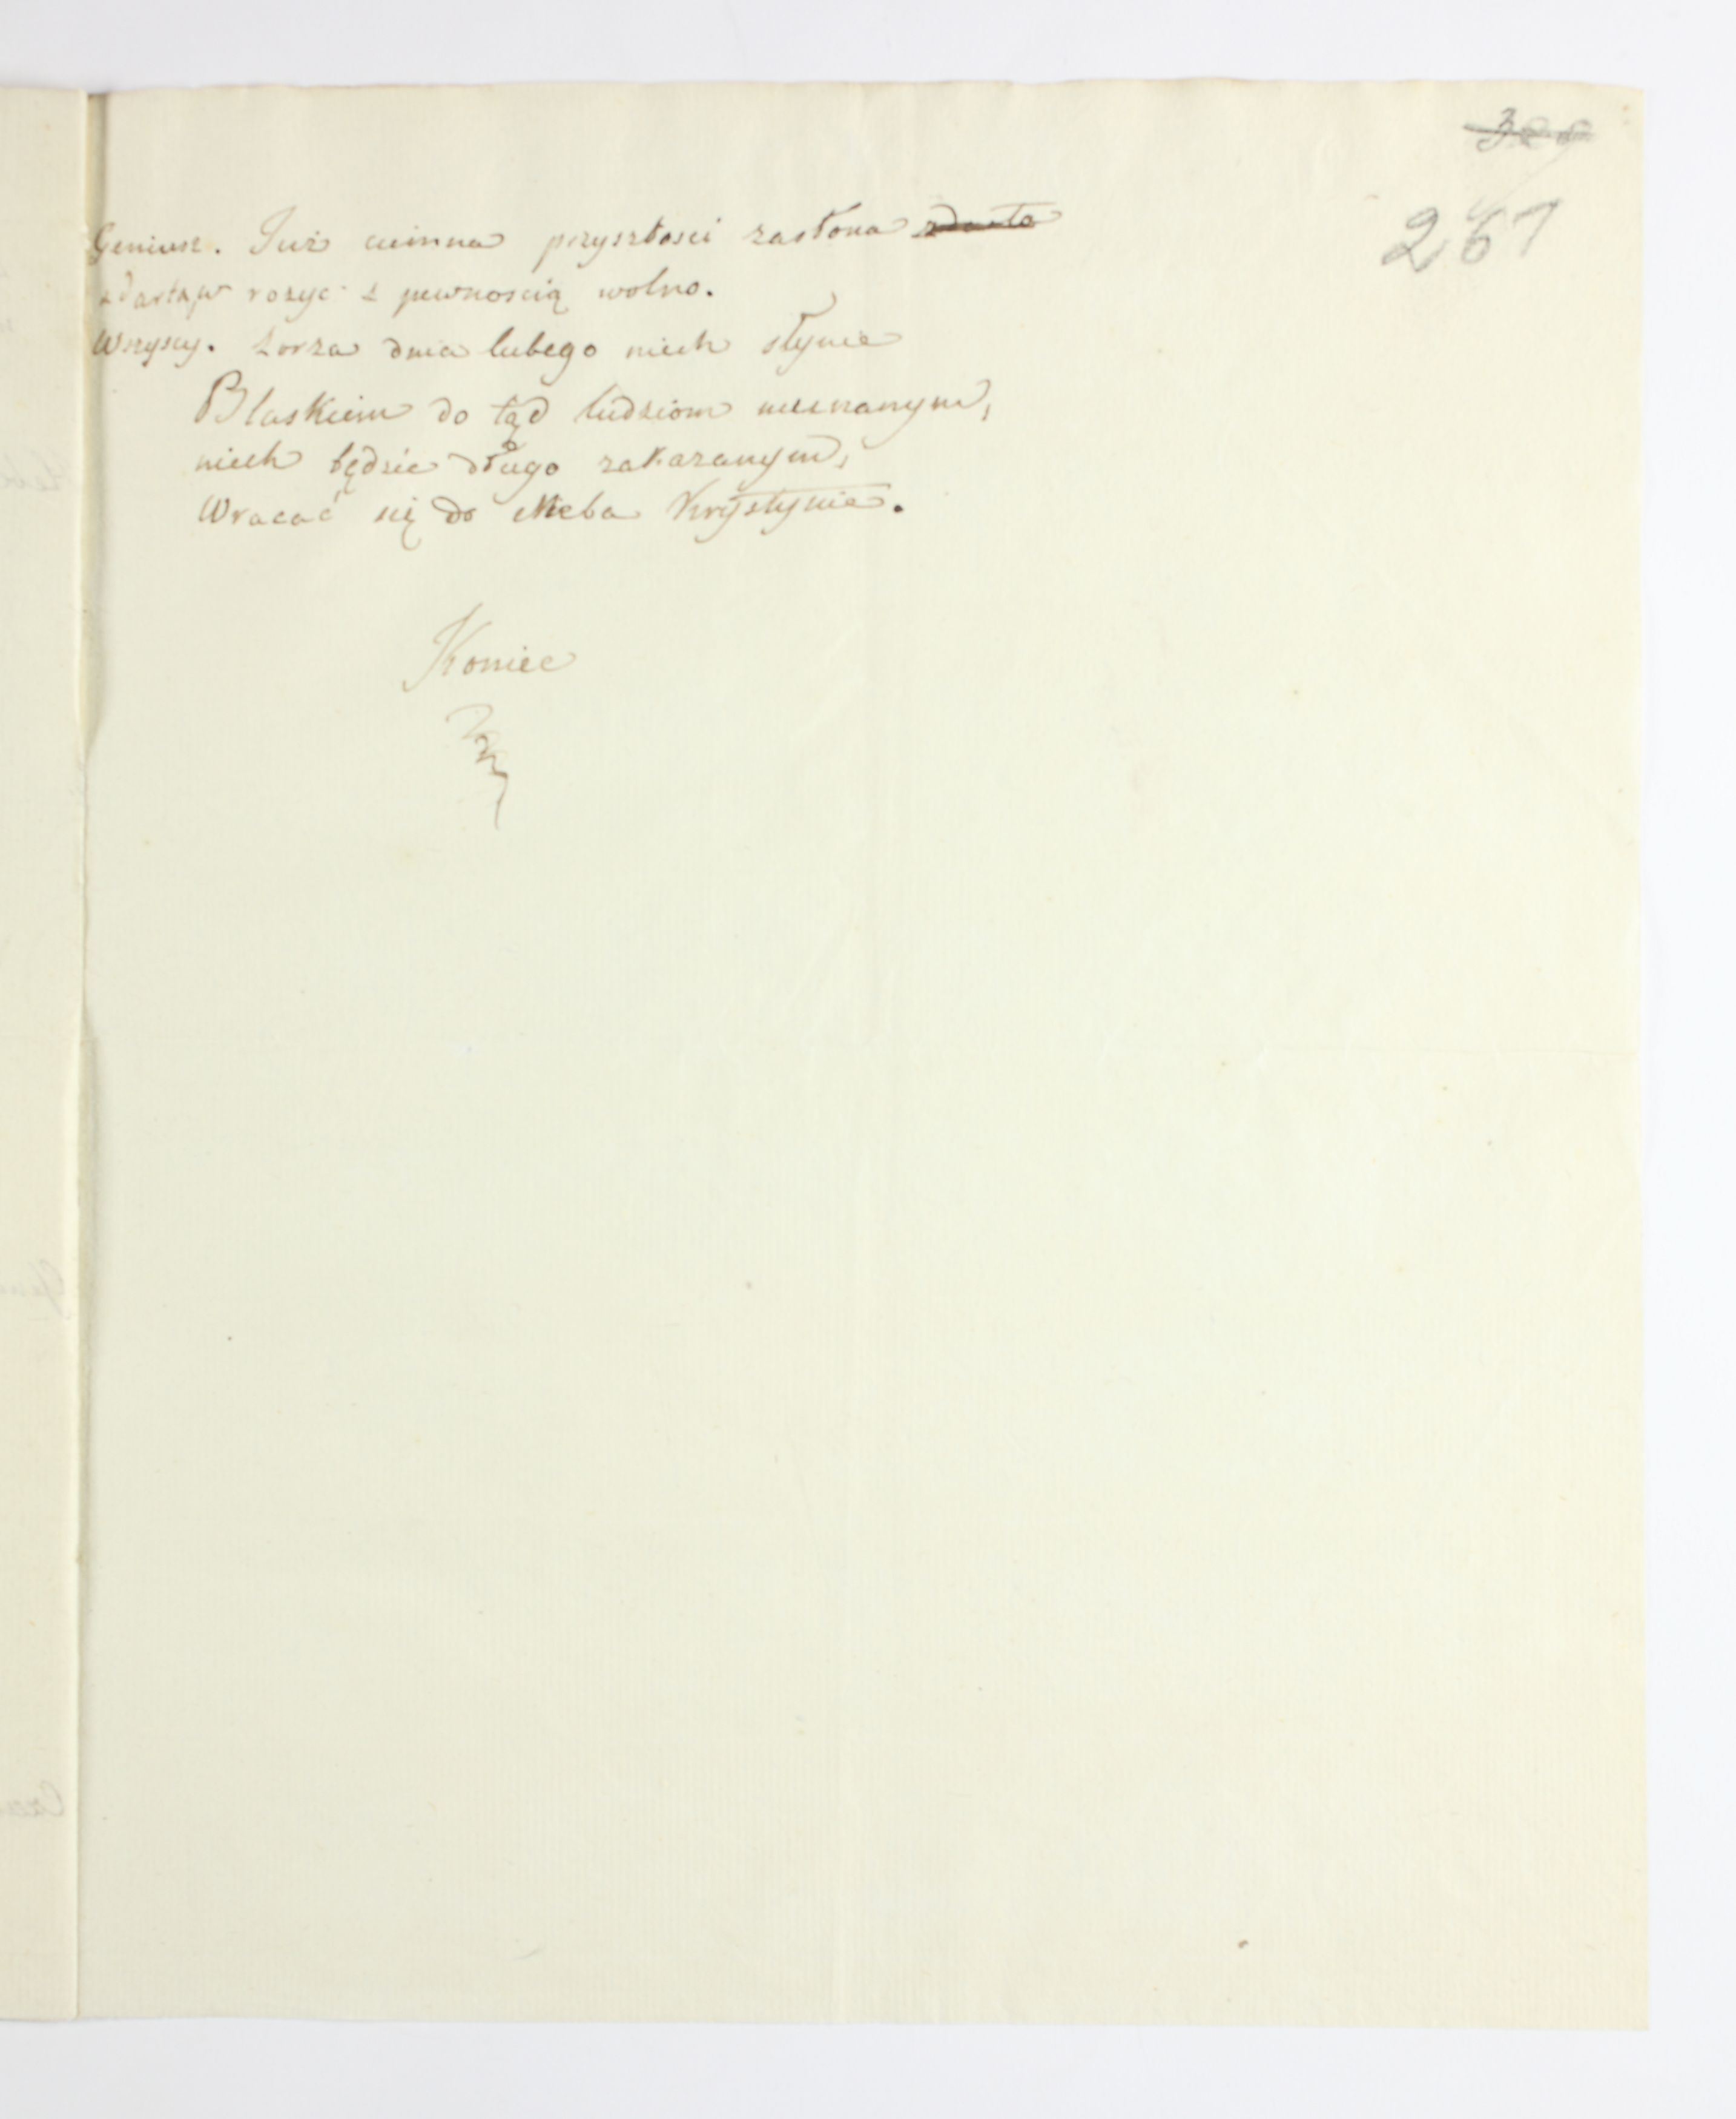 267
Geniusz. Już ciemna przyszłosci zasłona zdarta
zdarta, w rozyć z pewnoscią wolno.
Wszyscy. Zorza dnia lubego niech słynie
Blaskiem do tąd ludziom nieznanym,
niech będzie długo zakazanym,
Wracać się do Nieba Krystynie.
Koniec